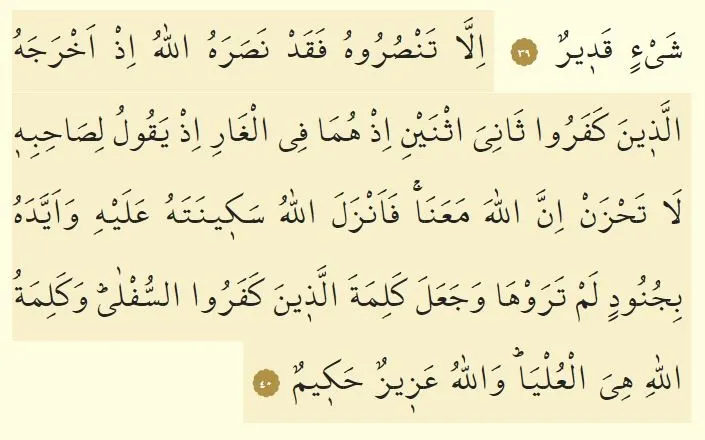 شَيْءٍ قَد۪يرٌ ﴿٣٩﴾ اِلَّا تَنْصُرُوهُ فَقَدْ نَصَرَهُ اللّٰهُ اِذْ اَخْرَجَهُ
الَّذ۪ينَ كَفَرُوا ثَانِيَ اثْنَيْنِ اِذْ هُمَا فِي الْغَارِ اِذْ يَقُولُ لِصَاحِبِه۪
لَا تَحْزَنْ اِنَّ اللّٰهَ مَعَنَاۚ فَاَنْزَلَ اللّٰهُ سَك۪ينَتَهُ عَلَيْهِ وَاَيَّدَهُ
بِجُنُودٍ لَمْ تَرَوْهَا وَجَعَلَ كَلِمَةَ الَّذ۪ينَ كَفَرُوا السُّفْلٰىۜ وَكَلِمَةُ
اللّٰهِ هِيَ الْعُلْيَاۜ وَاللّٰهُ عَز۪يزٌ حَك۪يمٌ ﴿٤٠﴾